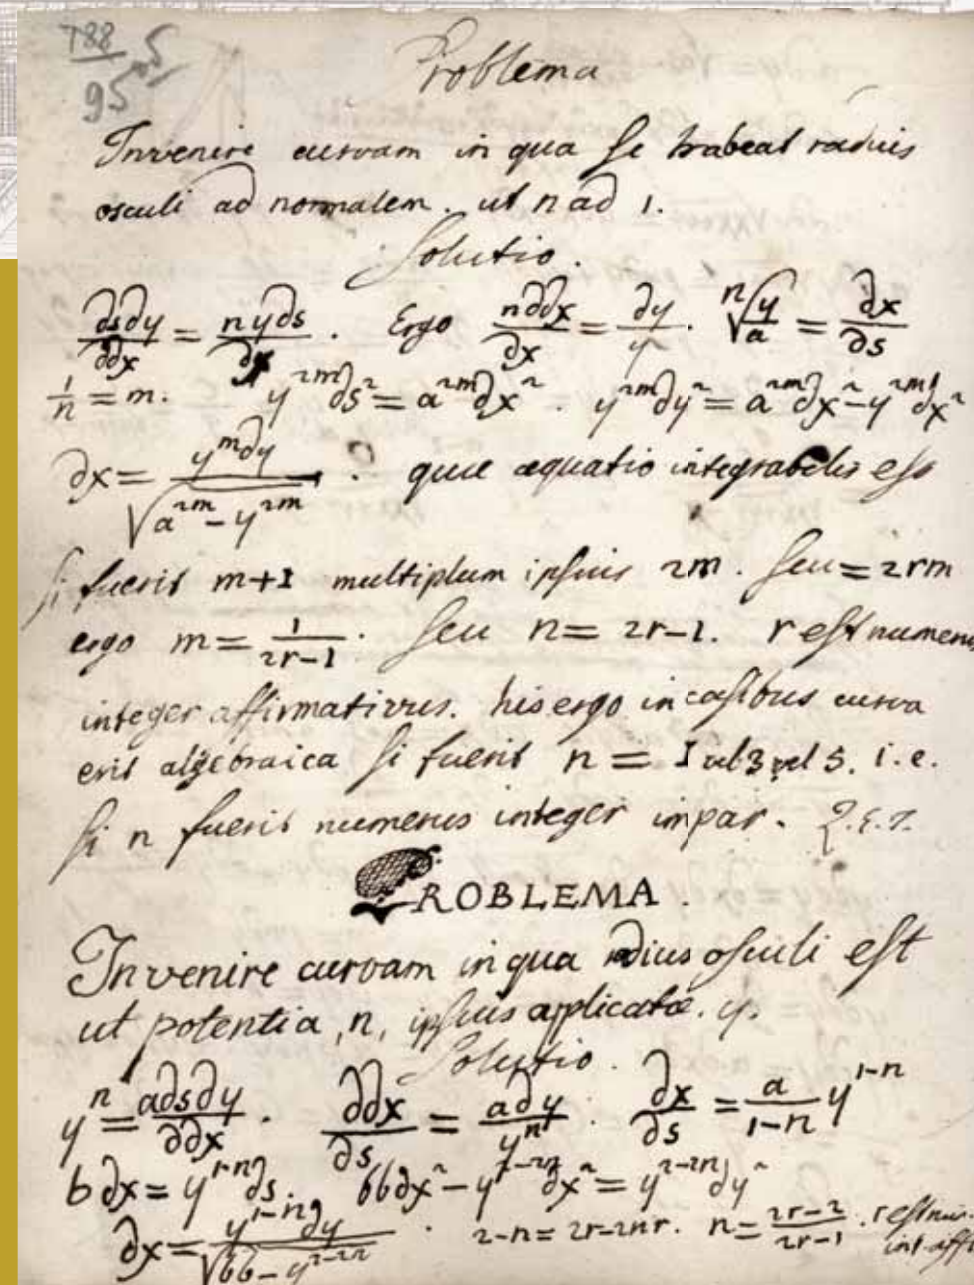 788
95
5
Problema
Invenire curvam in qua se habeat radius
osculi ad normalem. ut n ad 1.
Solutio.
∂s∂y/∂∂x = ny∂s/∂x. Ergo n∂∂x/∂x = ∂y/y. ⁿ√(y/a) = ∂x/∂s
1/n = m. y^2m ∂s^2 = a^2m ∂x^2. y^2m ∂y^2 = a^2m ∂x^2 − y^2m ∂x^2
∂x = y^m ∂y/√(a^2m − y^2m). quae aequatio integrabilis est
si fuerit m+1 multiplum ipsius 2m. seu = 2rm
ergo m = 1/(2r−1). seu n = 2r−1. r est numerus
integer affirmativus. his ergo in casibus curva
erit algebraica si fuerit n = 1 vel 3 vel 5. i.e.
si n fuerit numerus integer impar. Q.E.I.
PROBLEMA.
Invenire curvam in qua radius osculi est
ut potentia, n, ipsius applicatae. y.
Solutio.
y^n = a∂s∂y/∂∂x. ∂∂x/∂s = a∂y/y^n. ∂x/∂s = a/(1−n) y^1−n
b∂x = y^1−n ∂s. bb∂x^2 − y^2−2n ∂x^2 = y^2−2n ∂y^2
∂x = y^1−n ∂y/√(bb − y^2−2n). 2−n = 2r−2nr. n = (2r−2)/(2r−1). r est num.
int. aff.